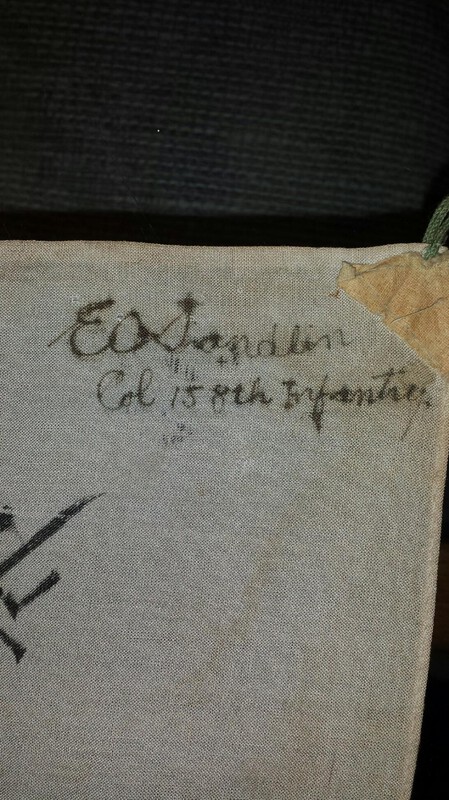 EO Sandlin
Col 158th Infantry